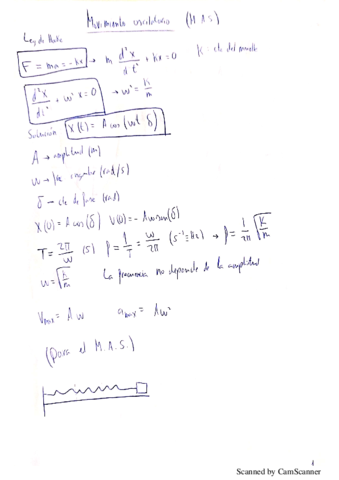 Movimiento oscilatorio (M.A.S)
Ley de Hooke
F = ma = -kx → m d²x/dt² + kx = 0 K: cte del muelle
d²x/dt² + w²x = 0 → w² = k/m
Solución X(t) = A cos(wt δ)
A → amplitud (m)
w → angular (rad/s)
δ → cte de fase (rad)
X(0) = A cos(δ) V(0) = -Aw sen(δ)
T = 2π/w (s) f = 1/T = w/2π (s⁻¹ = Hz) → f = 1/2π √k/m
w = √k/m La frecuencia no depende de la amplitud
Vmax = Aw amax = Aw²
(Para el M.A.S.)
Scanned by CamScanner